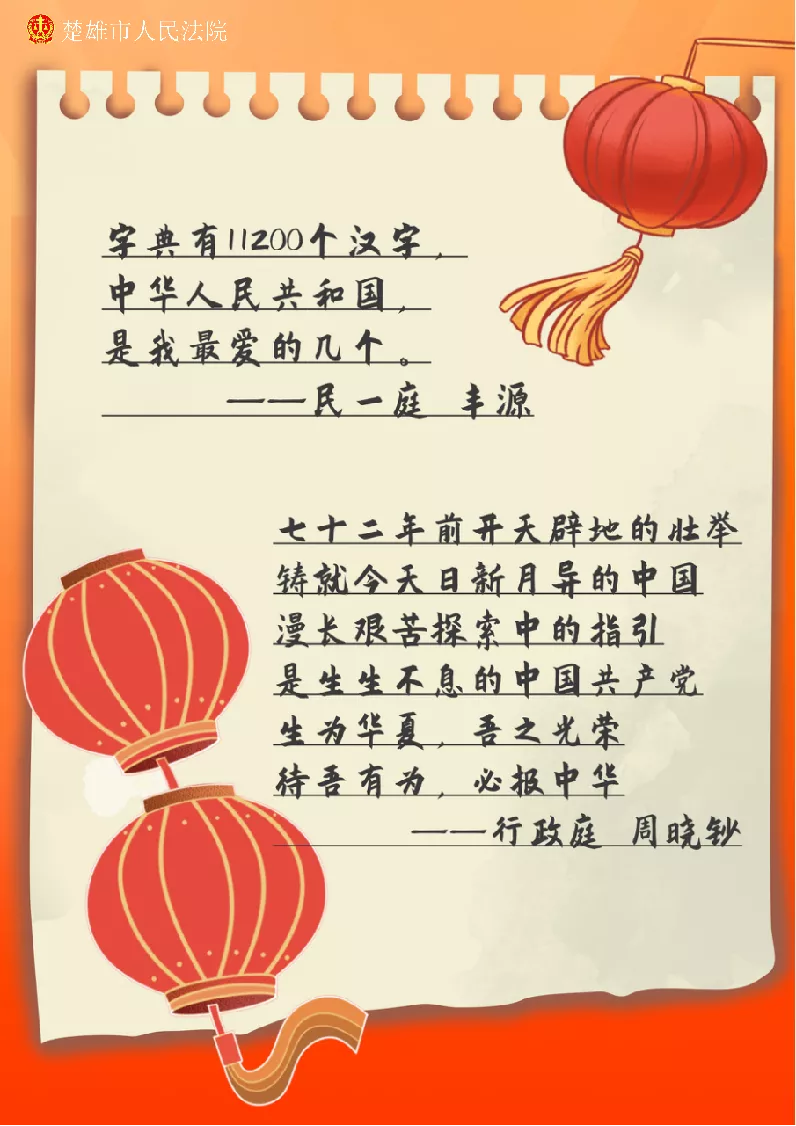 楚雄市人民法院
字典有11200个汉字，
中华人民共和国，
是我最爱的几个。
——民一庭 丰源
七十二年前开天辟地的壮举
铸就今天日新月异的中国
漫长艰苦探索中的指引
是生生不息的中国共产党
生为华夏，吾之光荣
待吾有为，必报中华
——行政庭 周晓钞